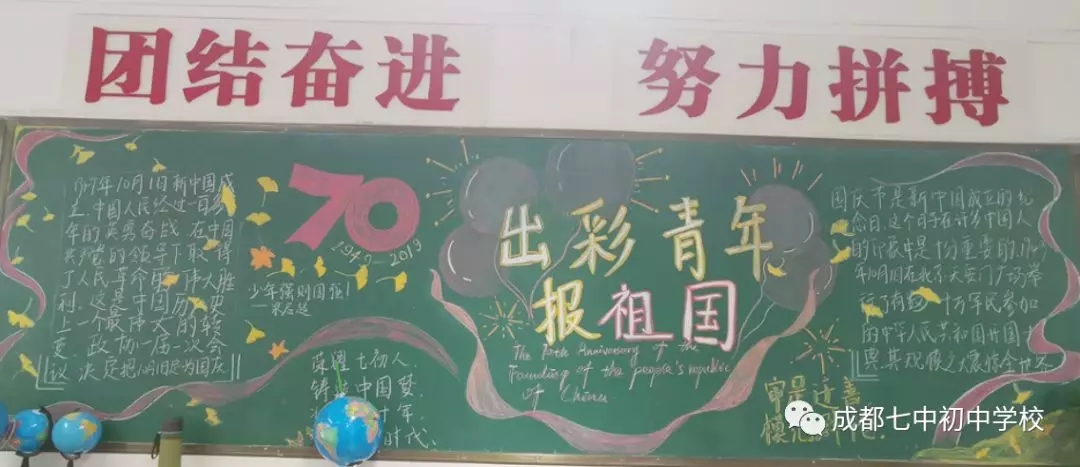 团结奋进 努力拼搏
1949年10月1日新中国成
立,中国人民经过一百多
年的英勇奋战,在中国
共产党的领导下,取得
了人民革命的伟大胜
利。这是中国历史
上一个最伟大的转
变。政协一届一次会
议决定把10月1日定为国庆
70
1949-2019
少年强则国强!
—梁启超
七初人
中国梦
年
时代
出彩青年
报祖国
The 70th Anniversary of the
Founding of the people's republic
of China
国庆节是新中国成立的纪
念日,这个日子在许多中国人
的记忆中是一份重要的。1949
年10月1日在北京天安门广场举
行了有数十万军民参加
的中华人民共和国开国大
典,其规模之大震惊全世界
成都七中初中学校